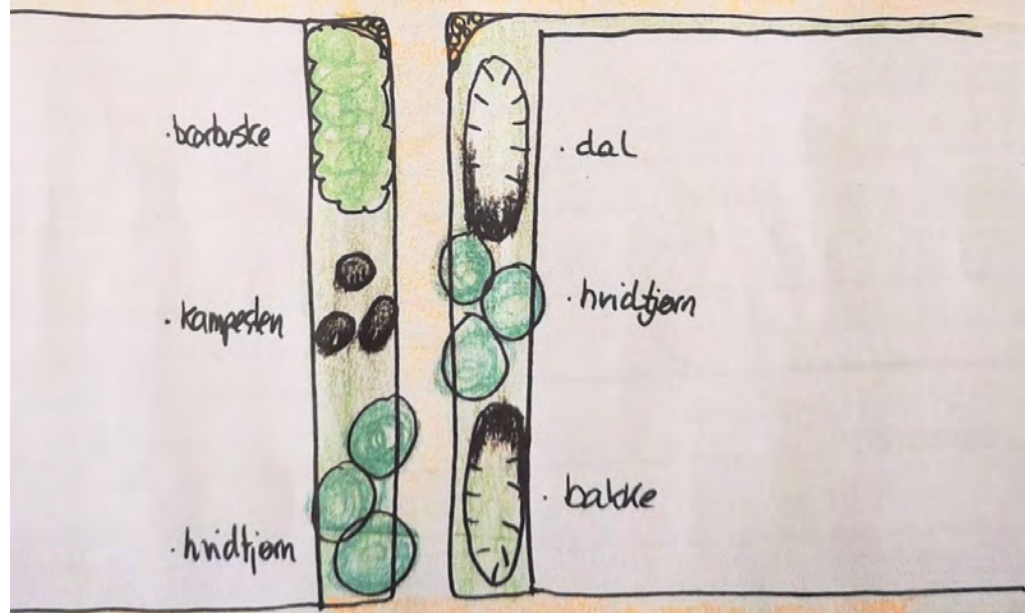 · bærbuske
· kampesten
· hvidtjørn
· dal
· hvidtjørn
· bakke